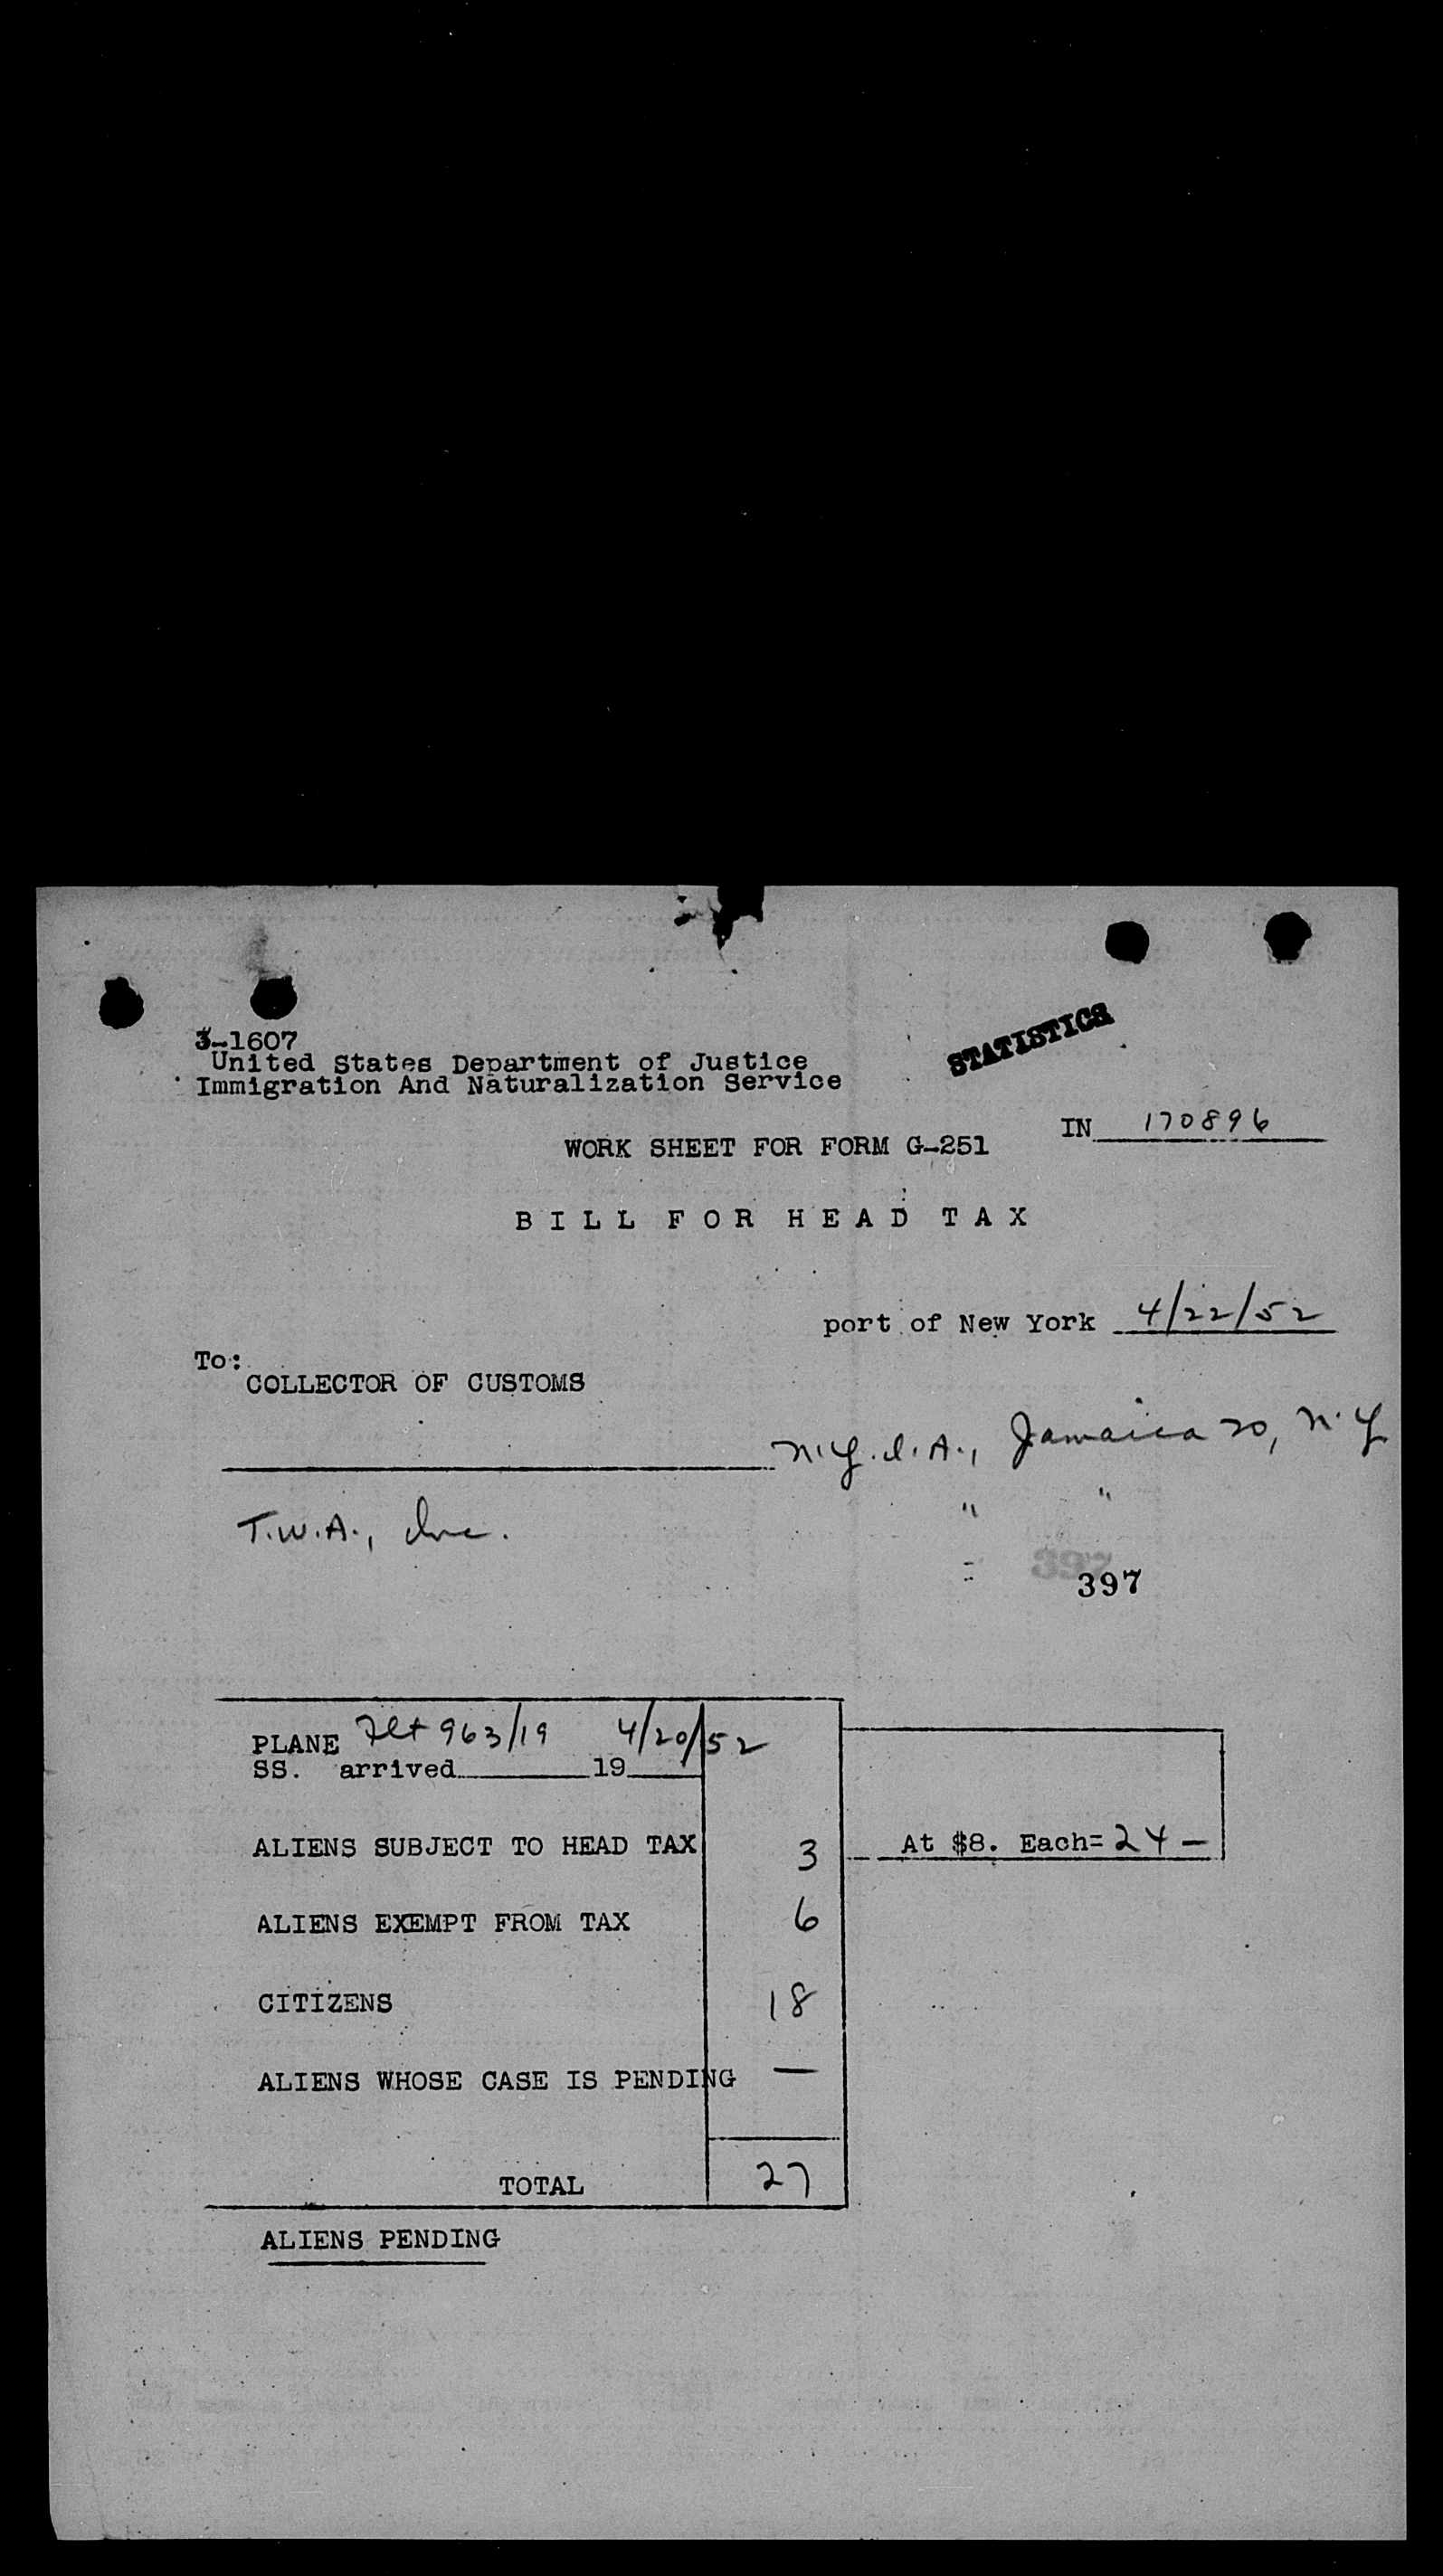 3-1607
United States Department of Justice
Immigration And Naturalization Service
STATISTICS
IN 170896
WORK SHEET FOR FORM G-251
BILL FOR HEAD TAX
port of New York 4/22/52
To:
COLLECTOR OF CUSTOMS
N.Y.I.A., Jamaica 20, N.Y
T.W.A., Inc. " "
397
397
PLANE Flt 963/19 4/20/52
SS. arrived 19
ALIENS SUBJECT TO HEAD TAX 3 At $8. Each= 24 —
ALIENS EXEMPT FROM TAX 6
CITIZENS 18
ALIENS WHOSE CASE IS PENDING —
TOTAL 27
ALIENS PENDING